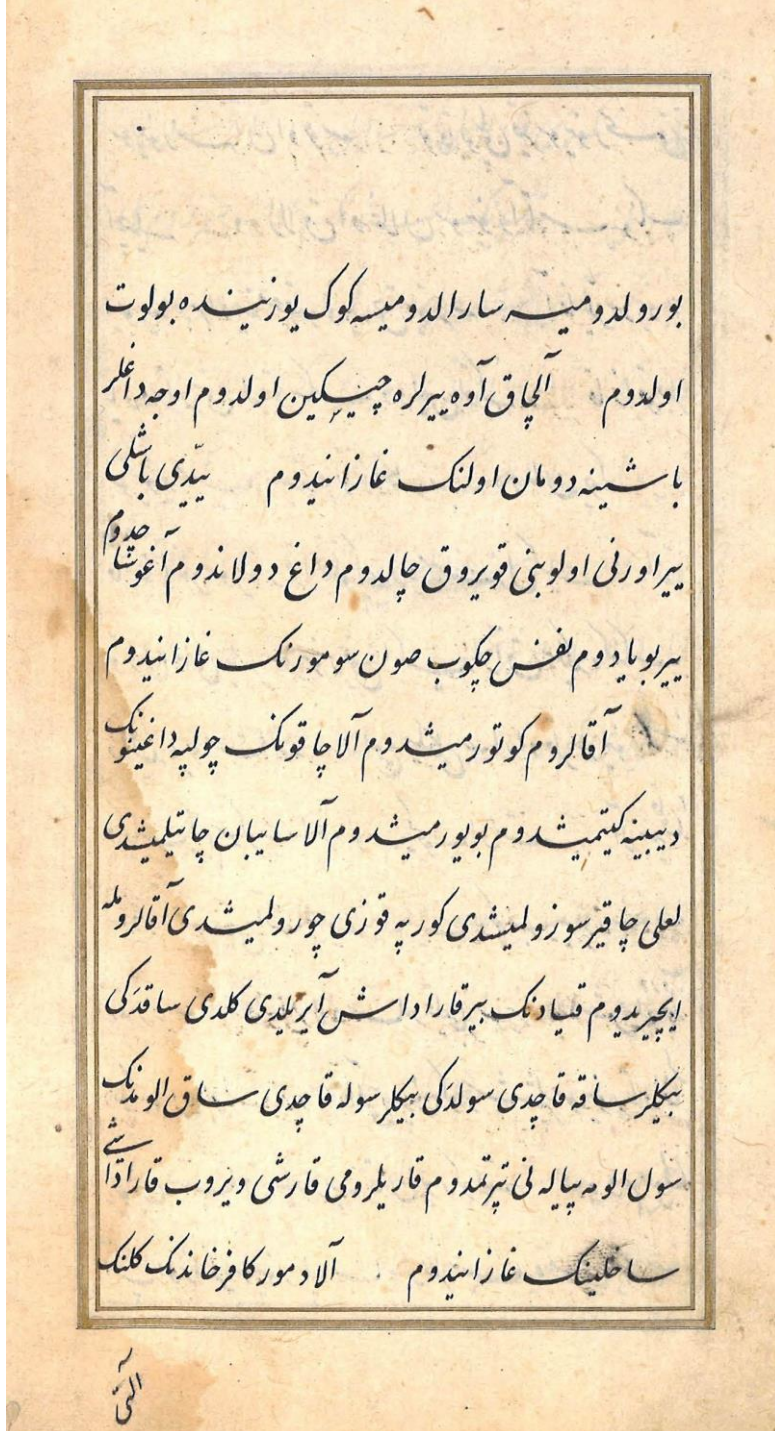 بورولدومیسه سارالدومیسه کوک یوزنینده بولوت
اولدوم آلچاق آوه ییرلره چیسکین اولدوم اوجه داغلر
باشینه دومان اولنک غازانیدوم ییدّی باشلی
ییر اورنی اولوبنی قویروق چالدوم داغ دولاندوم آغو ساچدوم
ییر بویادوم نفس چکوب صون سومورنک غازانیدوم
آقالروم کوتورمیشدوم آلاچاقونک چولپه داغینونک
دیبینه کیتمیشدوم بویورمیشدوم آلا سایبان چاتیلمیشدی
لعلی چاقیر سوزولمیشدی کورپه قوزی چورولمیشدی آقالرومله
ایچیردوم قیادنک بیر قارا داش آیریلدی کلدی ساقدَکی
بیکلر ساقه قاچدی سولدَکی بیکلر سوله قاچدی ساق الومدنک
سول الومه پیاله نی تپرتمدوم قاریلرومی قارشی ویروب قارا داشی
ساخلینک غازانیدوم آلا دمور کافر خاندنک کلنک
آلتی